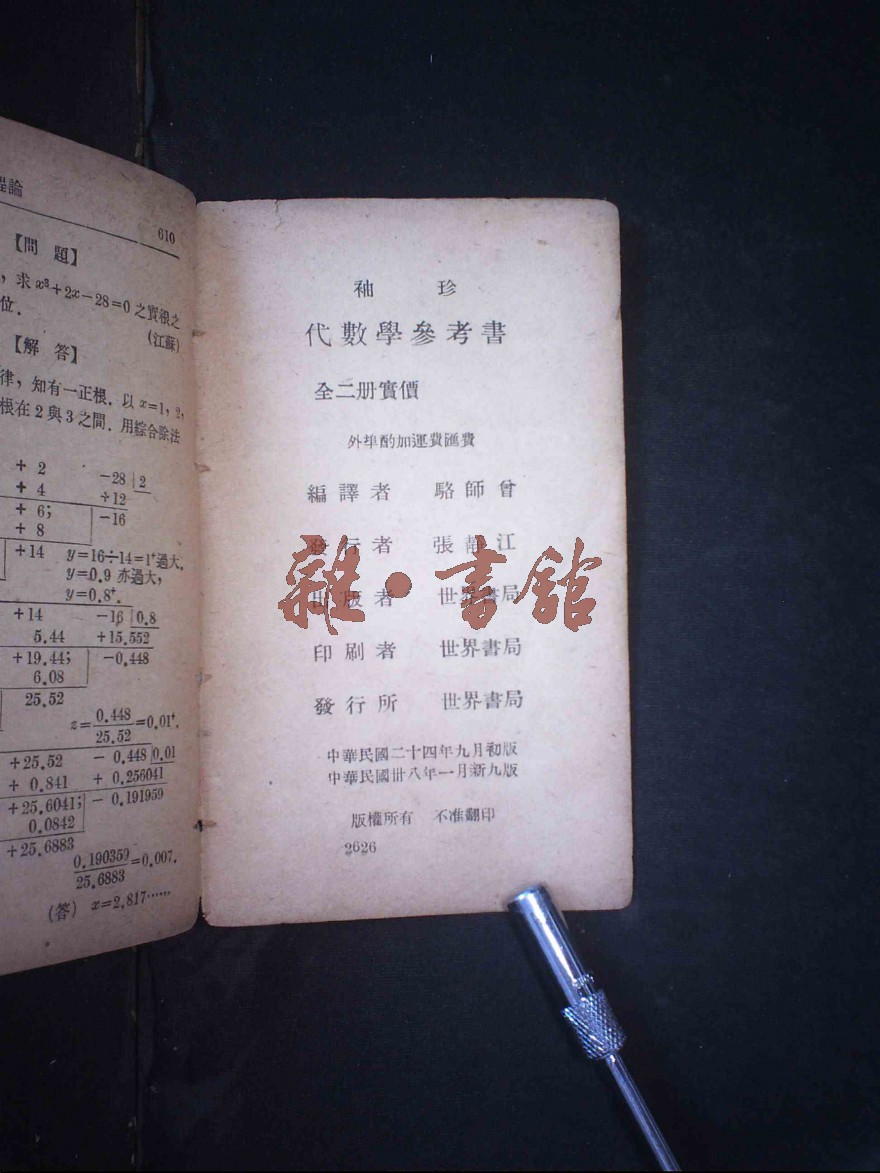 程論
610
【問 題】
，求 x³+2x−28=0 之實根之
位．
(江蘇)
【解 答】
律，知有一正根．以 x=1, 2,
根在 2 與 3 之間．用綜合除法
+ 2 −28 |2
+ 4 +12
+ 6; −16
+ 8
+14 y=16÷14=1⁺過大，
y=0.9 亦過大，
y=0.8⁺.
+14 −16 |0.8
5.44 +15.552
+19.44; −0.448
6.08
25.52
z=0.448/25.52=0.01⁺.
+25.52 − 0.448 |0.01
+ 0.841 + 0.256041
+25.6041; − 0.191959
0.0842
+25.6883
0.190359/25.6883=0.007.
(答) x=2.817……
袖 珍
代數學參考書
全二册實價
外埠酌加運費匯費
編譯者 駱師曾
發行者 張靜江
出版者 世界書局
印刷者 世界書局
發行所 世界書局
中華民國二十四年九月初版
中華民國卅八年一月新九版
版權所有 不准翻印
2626
雜·書館